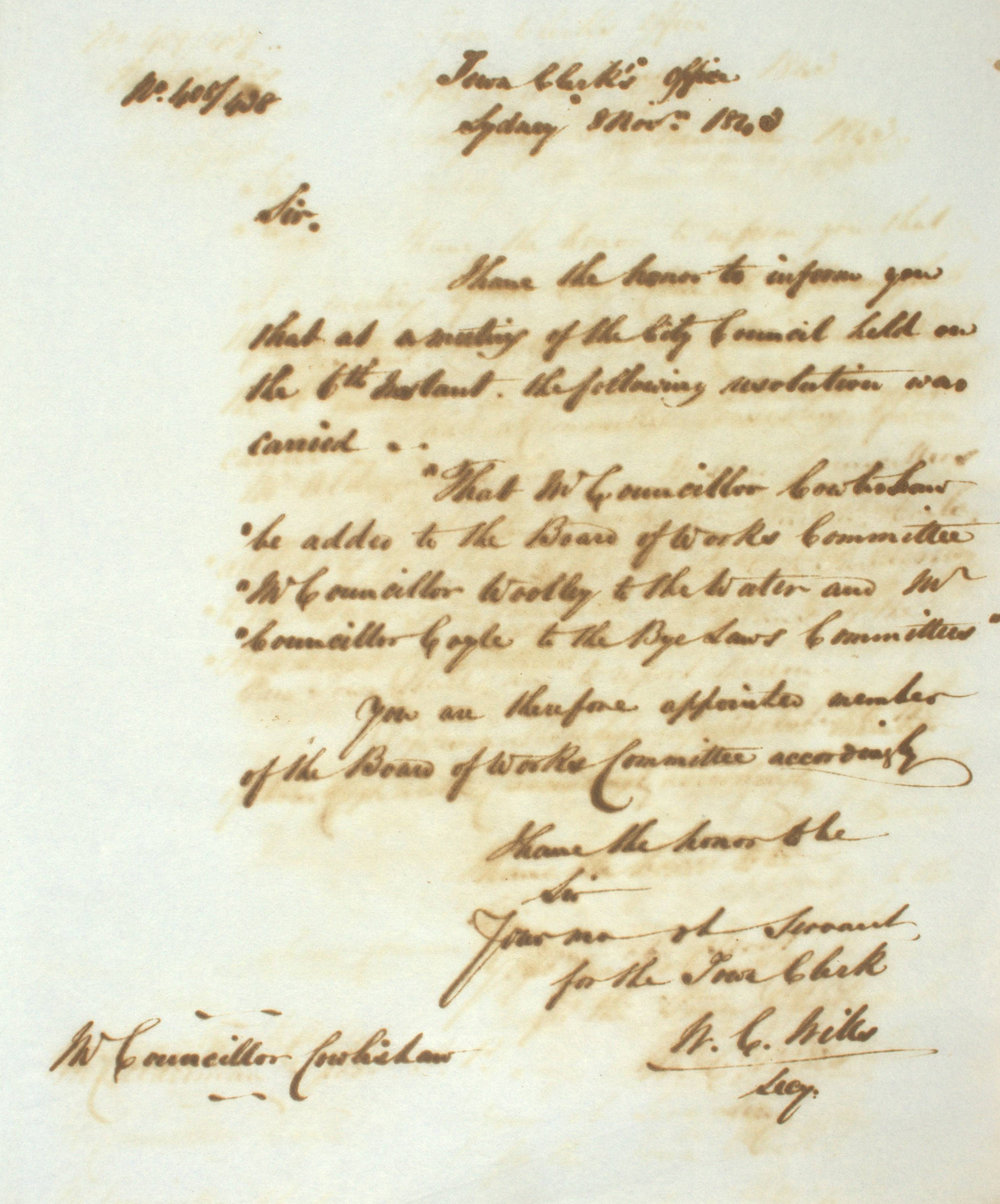 No. 408/438
Town Clerk's Office
Sydney 8 Novr. 1843
Sir.
I have the honor to inform you
that at a meeting of the City Council held on
the 6th Instant. the following resolution was
carried - -
"That Mr Councillor Cowlishaw
"be added to the Board of Works Committee
"Mr Councillor Woolley to the Water and Mr
"Councillor Coyle to the Bye Laws Committees"
You are therefore appointed member
of the Board of Works Committee accordingly
I have the honor to be
Sir
Your mo ob Servant
for the Town Clerk
W. C. Wills
Secy.
Mr Councillor Cowlishaw